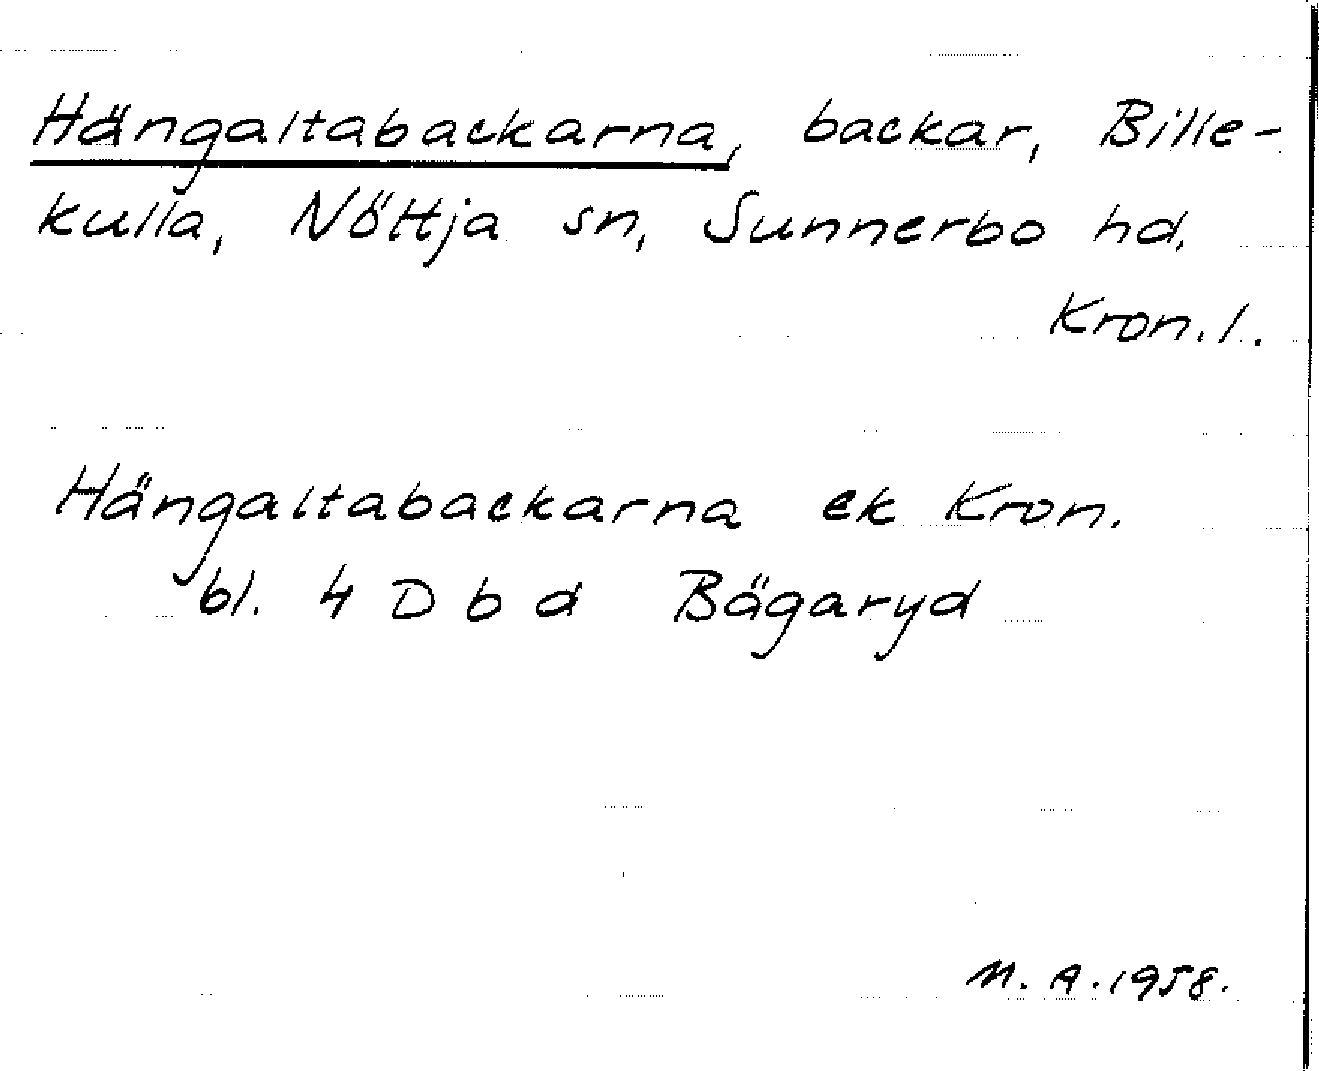 Hängaltabackarna, backar, Bille-
kulla, Nöttja sn, Sunnerbo hd.
Kron. l.
Hängaltabackarna ek Kron.
bl. 4 D b d Bägaryd
M. A. 1958.